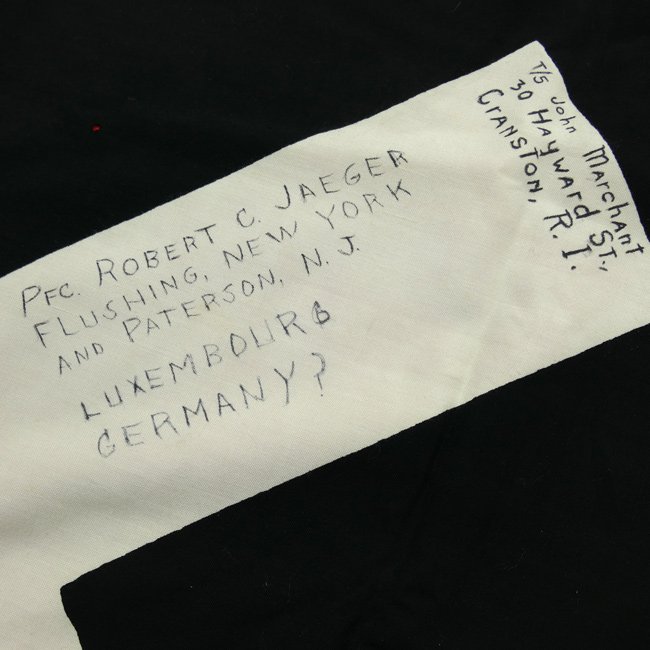 PFC. ROBERT C. JAEGER
FLUSHING, NEW YORK
AND PATERSON, N. J.
LUXEMBOURG
GERMANY?
T/5 John Marchant
30 Hayward St.,
Cranston, R. I.